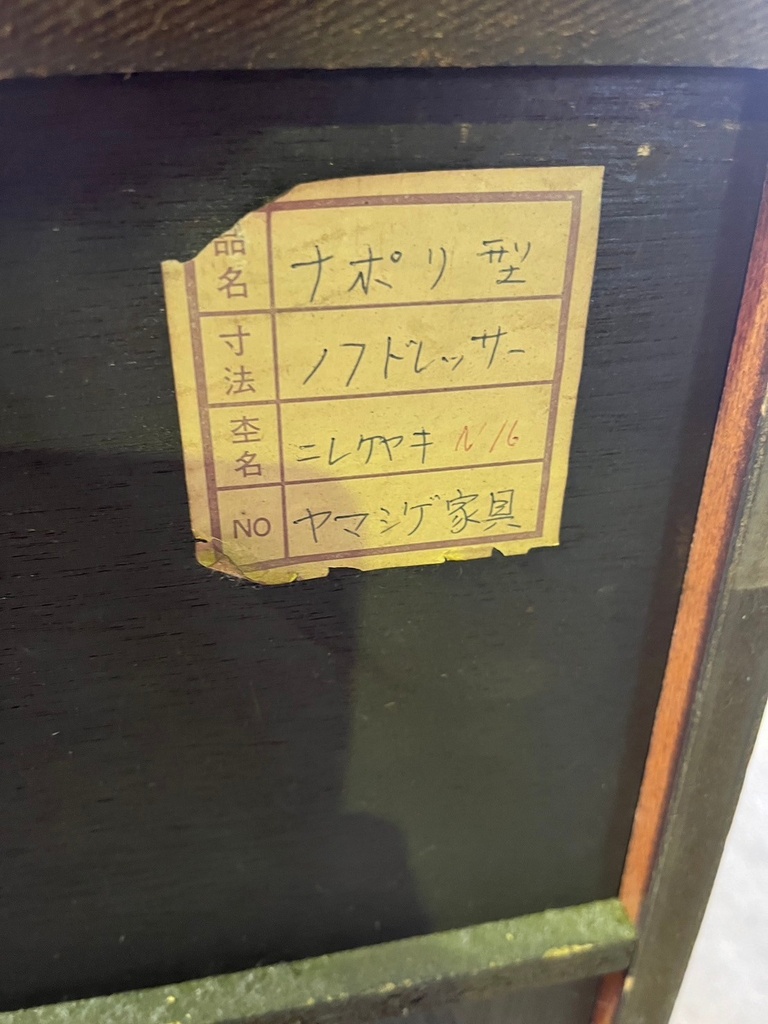 品名 ナポリ型
寸法 ノフドレッサー
杢名 ニレケヤキ N16
NO ヤマシゲ家具